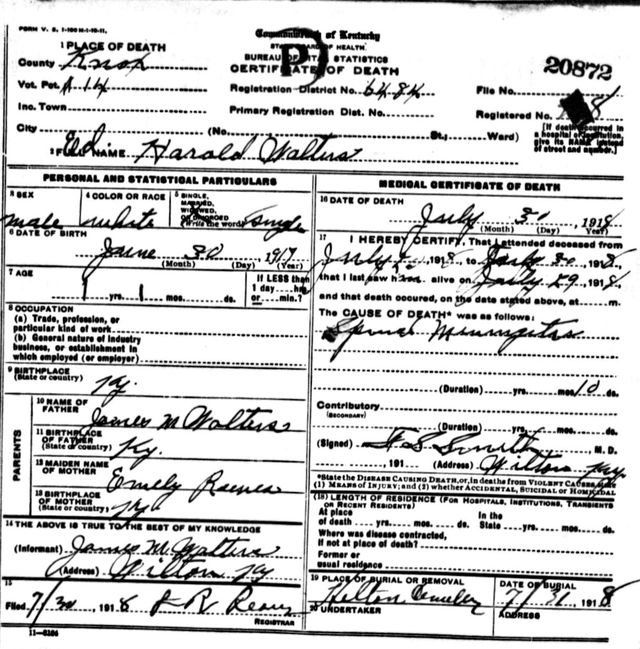 FORM V. S. 1-100 M-1-10-11.
Commonwealth of Kentucky
STATE BOARD OF HEALTH.
BUREAU OF VITAL STATISTICS
CERTIFICATE OF DEATH
20872
1 PLACE OF DEATH
County Knox
Vot. Pct. A 14
Inc. Town
City
Registration District No. 6484
Primary Registration Dist. No.
File No.
Registered No. 8
(No. St.; Ward)
[If death occurred in a hospital or institution, give its NAME instead of street and number.]
2 FULL NAME Harold Walters
PERSONAL AND STATISTICAL PARTICULARS
3 SEX
male
4 COLOR OR RACE
white
5 SINGLE, MARRIED, WIDOWED, OR DIVORCED
(Write the word) Single
6 DATE OF BIRTH
June 30, 1917
(Month) (Day) (Year)
7 AGE
1 yrs. 1 mos. ds.
If LESS than 1 day hrs. or min.?
8 OCCUPATION
(a) Trade, profession, or
particular kind of work
(b) General nature of industry
business, or establishment in
which employed (or employer)
9 BIRTHPLACE
(State or country) Ky.
PARENTS
10 NAME OF FATHER
James M Walters
11 BIRTHPLACE OF FATHER
(State or country) Ky.
12 MAIDEN NAME OF MOTHER
Emely
13 BIRTHPLACE OF MOTHER
(State or country) Ky
14 THE ABOVE IS TRUE TO THE BEST OF MY KNOWLEDGE
(Informant) James M. Walters
(Address) Wilton Ky
15
Filed 7/30, 1918
REGISTRAR
11-5184
MEDICAL CERTIFICATE OF DEATH
16 DATE OF DEATH
July 30, 1918
(Month) (Day) (Year)
17 I HEREBY CERTIFY, That I attended deceased from
July 1, 1918, to July 30, 1918,
that I last saw him alive on July 29, 1918,
and that death occured, on the date stated above, at m.
The CAUSE OF DEATH* was as follows:
Spinal Miningitas
(Duration) yrs. mos. 10 ds.
Contributory
(SECONDARY)
(Duration) yrs. mos. ds.
(Signed) F S Smith, M. D.
, 191 (Address) Wilton Ky
*State the DISEASE CAUSING DEATH, or, in deaths from VIOLENT CAUSES, state
(1) MEANS OF INJURY; and (2) whether ACCIDENTAL, SUICIDAL or HOMICIDAL
(18) LENGTH OF RESIDENCE (FOR HOSPITALS, INSTITUTIONS, TRANSIENTS
OR RECENT RESIDENTS)
At place of death yrs. mos. ds. In the State yrs. mos. ds.
Where was disease contracted,
if not at place of death?
Former or
usual residence
19 PLACE OF BURIAL OR REMOVAL
DATE OF BURIAL
7/31, 1918
20 UNDERTAKER
ADDRESS